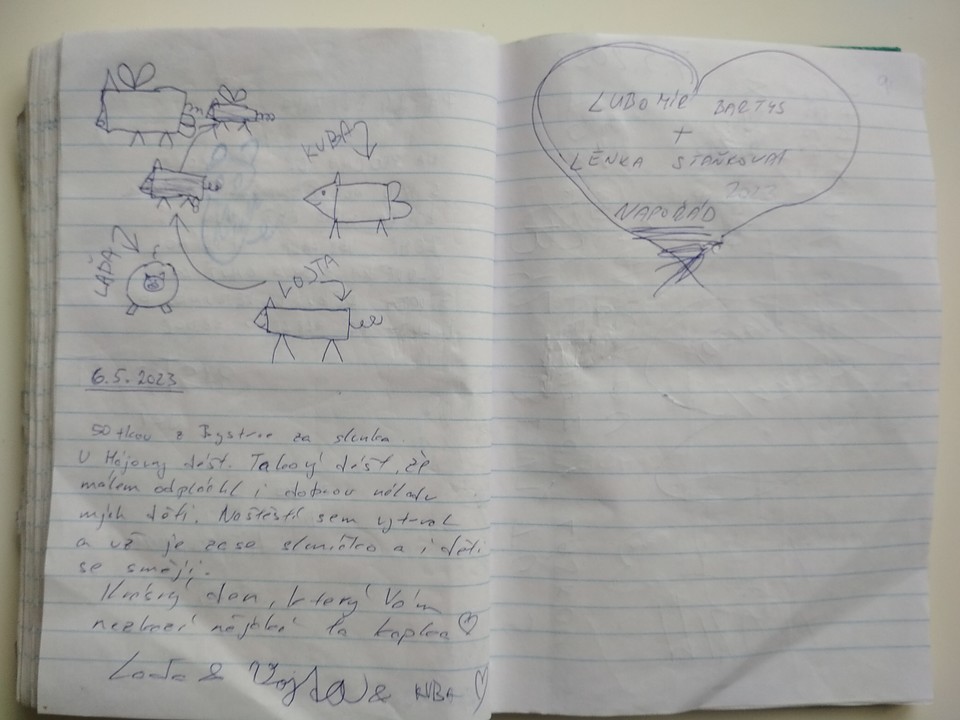 KUBA
LÁĎA
VOJTA
6.5.2023
50tkou z Bystrce za slunka.
U Hájovny déšť. Takový déšť, že
málem odpláchl i dobrou náladu
mých dětí. Naštěstí sem vytrval
a už je zase sluníčko a i děti
se smějí.
Krásný den, který Vám
nezkazí nějaká ta kapka
Laďa & Vojta & KUBA
LUBOMÍR BARTYS
+
LENKA STAŇKOVÁ
2023
NAPOŘÁD